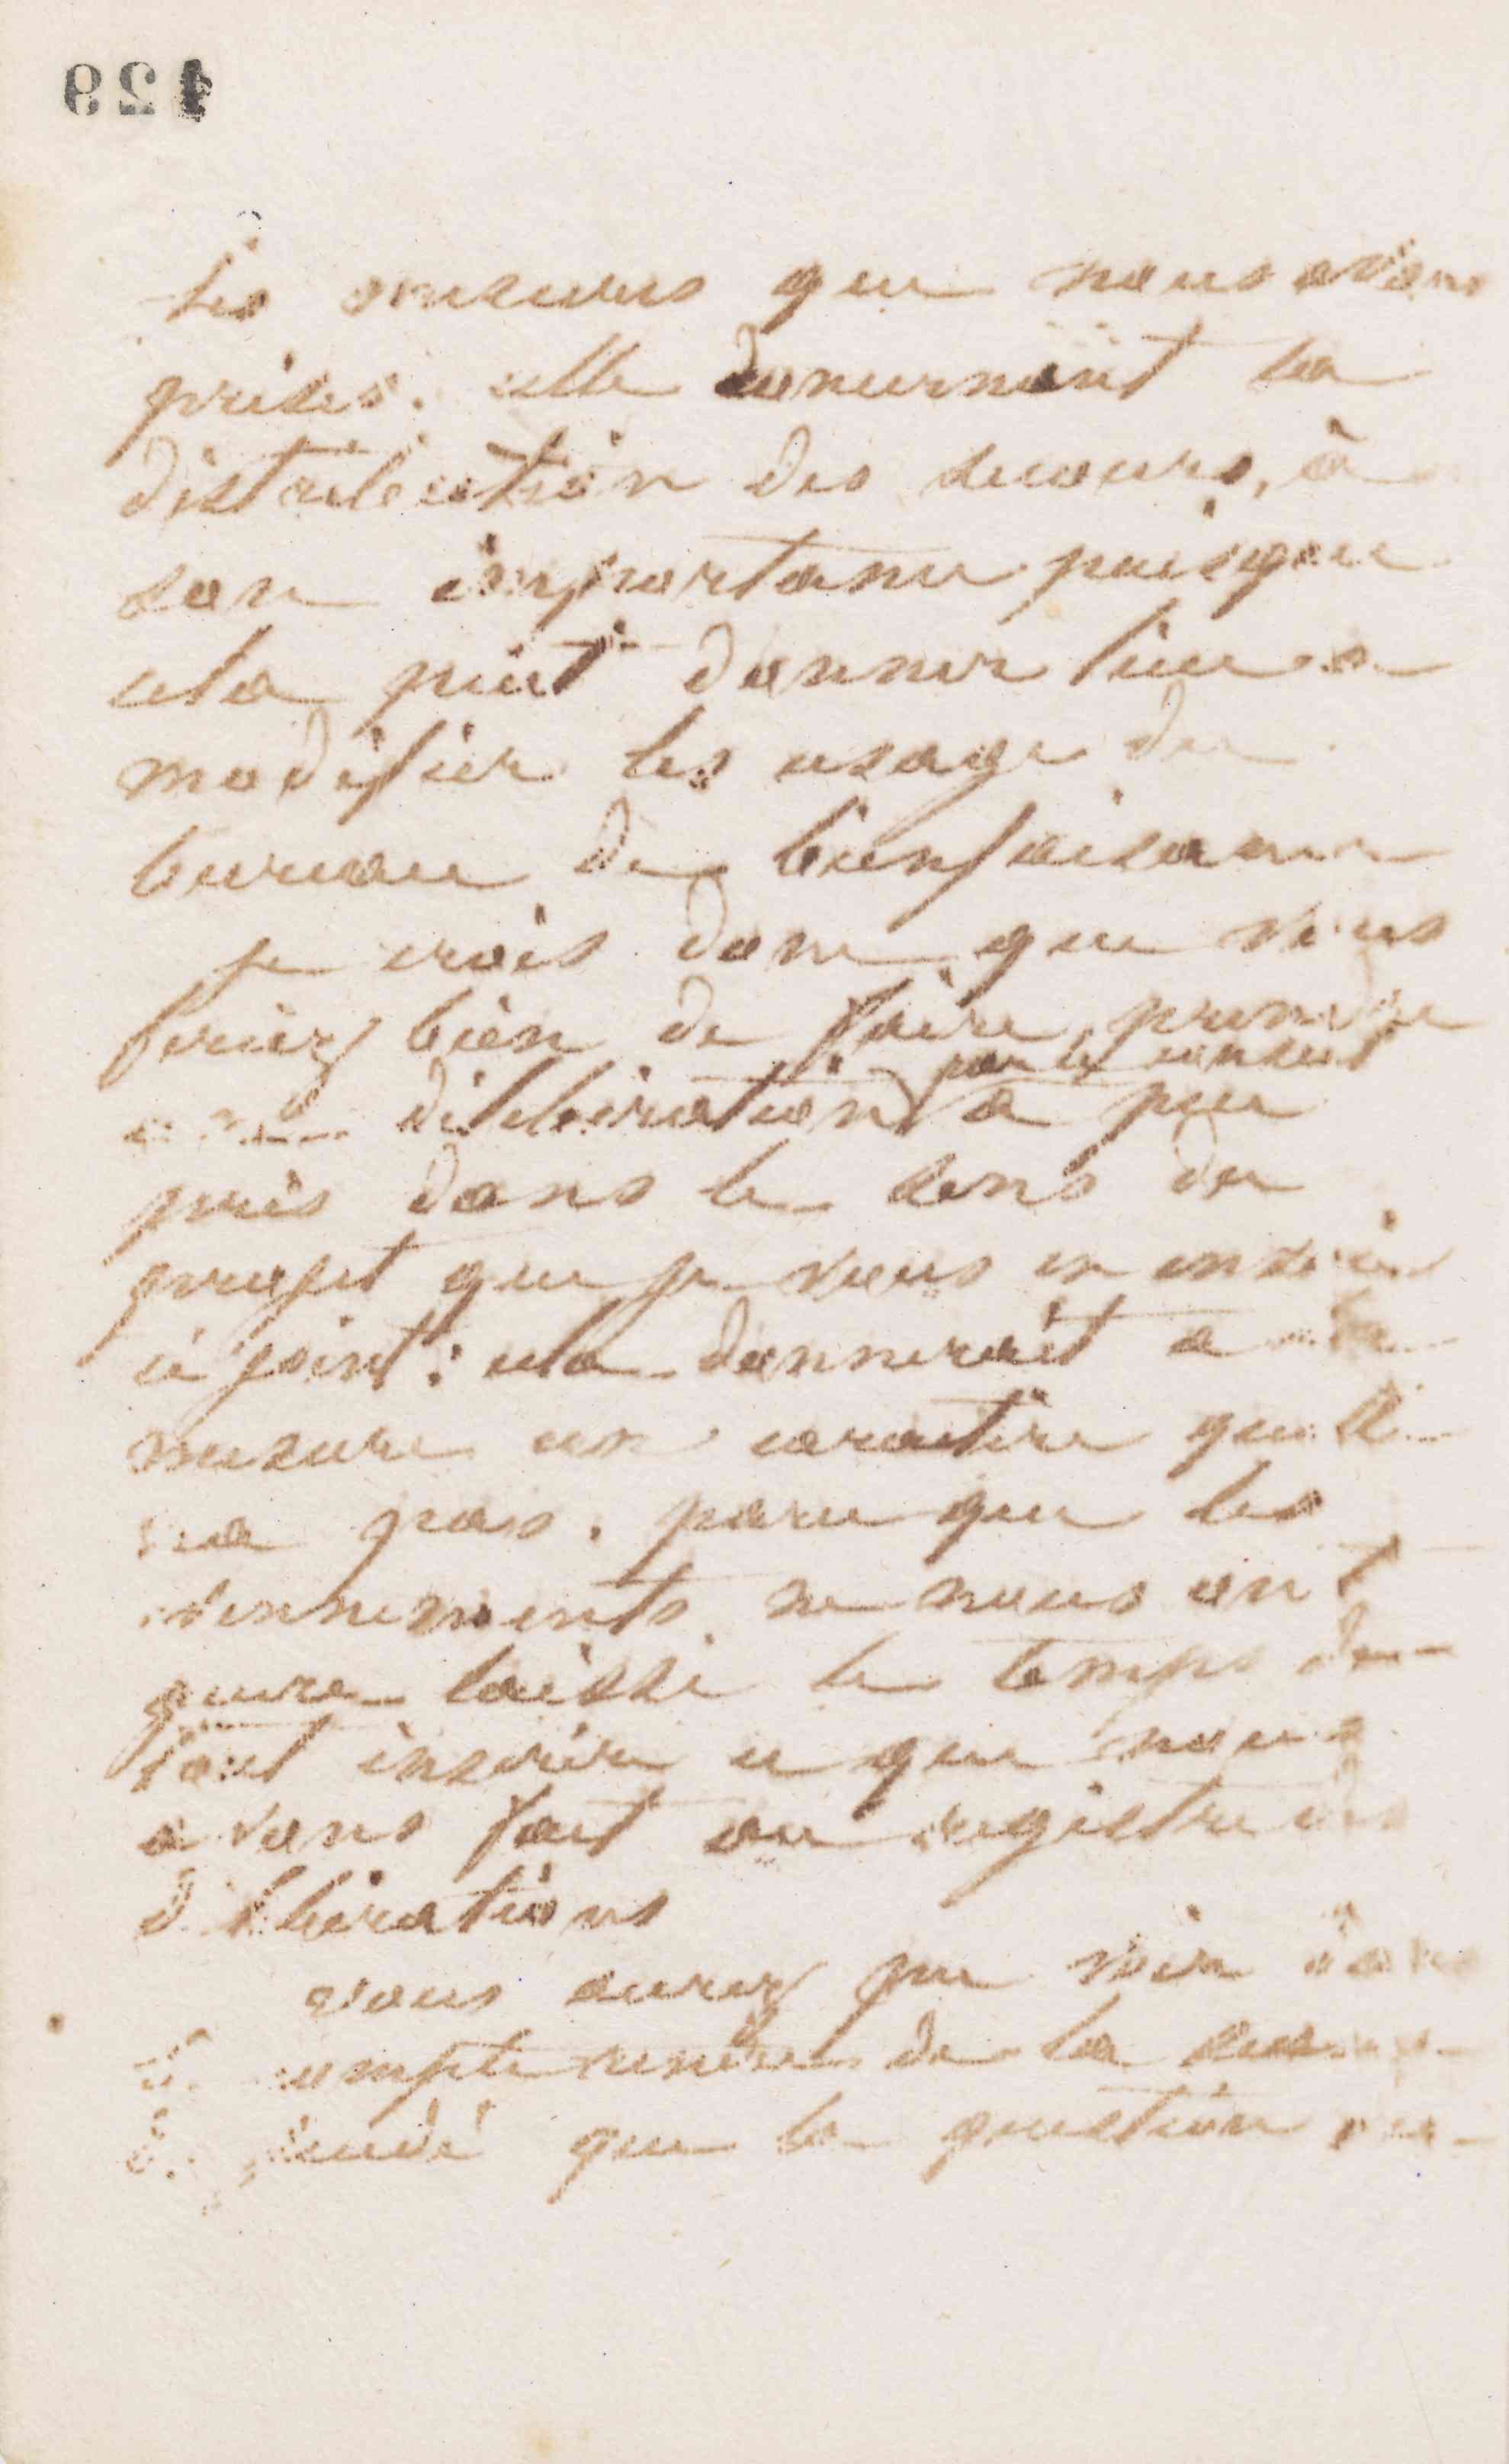 429
les mesures que nous avons
prises. celle concernant la
distribution des secours, à
son importance puisque
cela peut donner lieu a
modifier les usage du
bureau de bienfaisance
je crois donc que vous
feriez bien de faire prendre
une délibération par le conseil a peu
près dans le sens du
projet que je vous en envoie
ci joint : cela donnerait a la
mesure un caractère quelle
na pas. parce que les
évennements ne nous ont
guere laissé le temps de
tout inscrire ce que nous
avons fait au registre des
délibérations
vous aurez pu voir dans
le compte rendu de la
de jeudi que la question